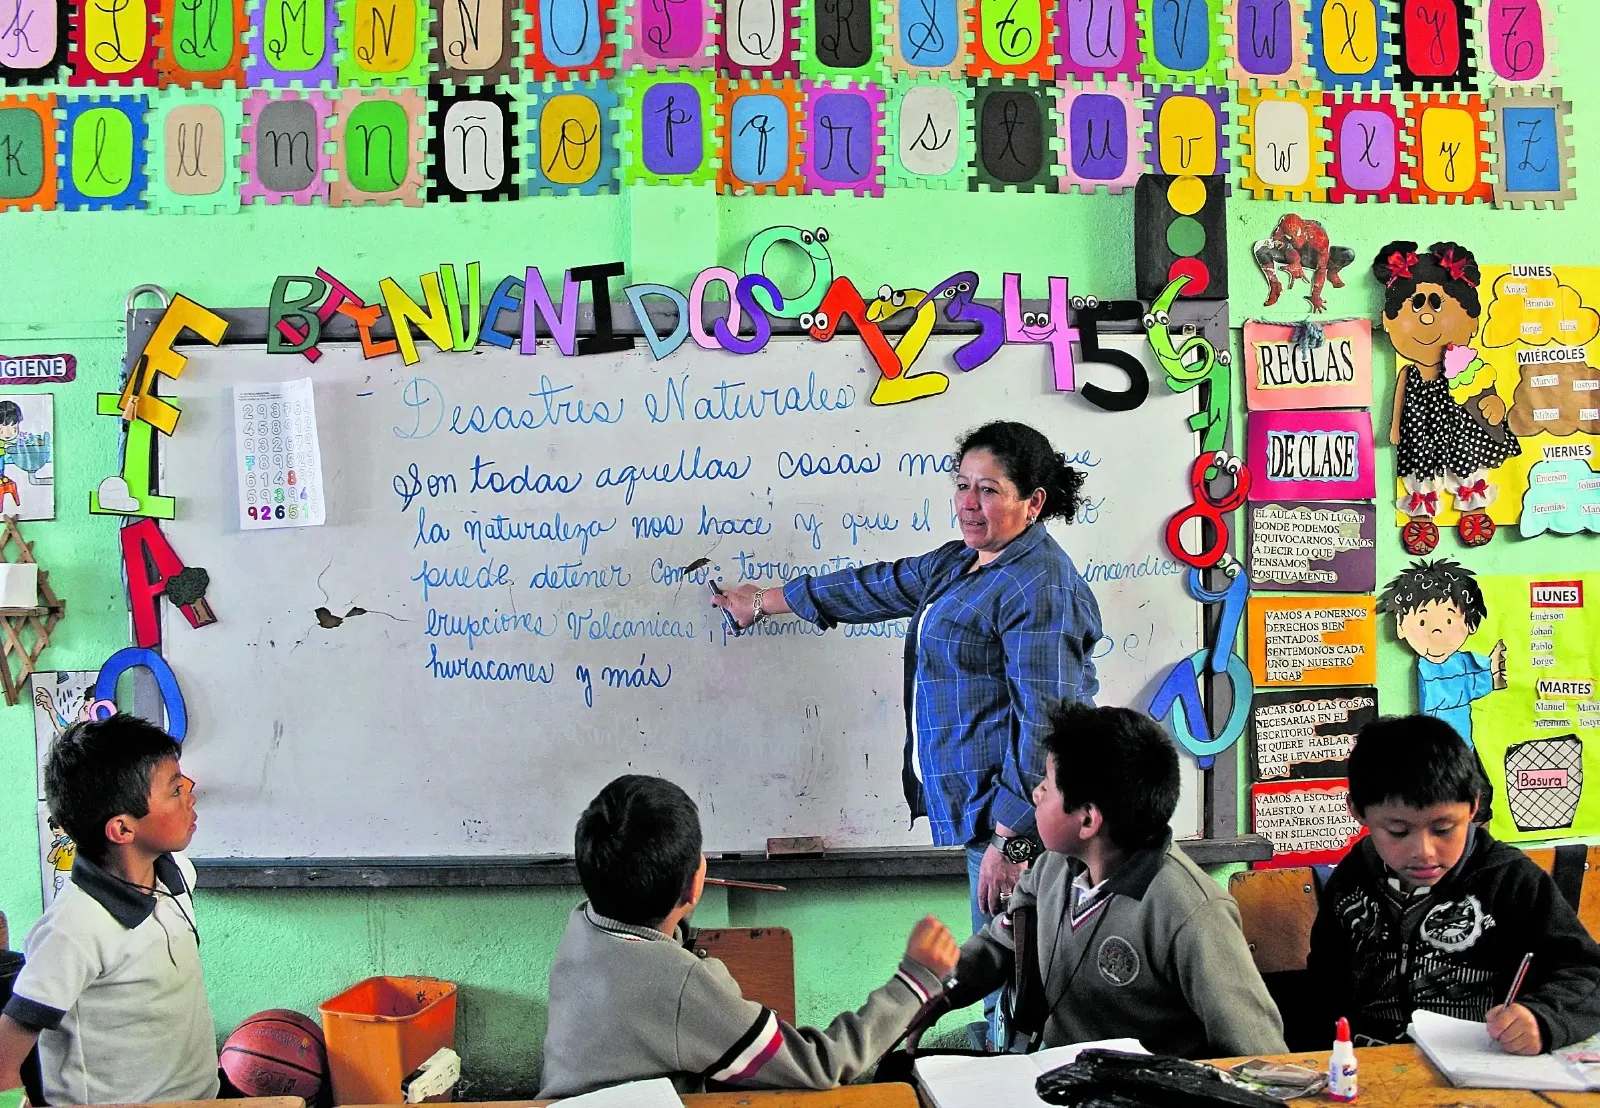 k Ll Ll M N Ñ O P Q R S T U V W X Y Z
k l ll m n ñ o p q r s t u v w x y z
BIENVENIDOS 0 1 2 3 4 5 6 7 8 9 10
IGIENE
Desastres Naturales
Son todas aquellas cosas que
la naturaleza nos hace y que el
puede detener como: terremotos incendios
erupciones Volcanicas,
huracanes y más
REGLAS
DE CLASE
EL AULA ES UN LUGAR
DONDE PODEMOS
EQUIVOCARNOS, VAMOS
A DECIR LO QUE
PENSAMOS
POSITIVAMENTE.
VAMOS A PONERNOS
DERECHOS BIEN
SENTADOS.
SENTEMONOS CADA
UNO EN NUESTRO
LUGAR
SACAR SOLO LAS COSAS
NECESARIAS EN EL
ESCRITORIO
SI QUIERE HABLAR
CLASE LEVANTE LA
MANO
VAMOS A ESCUCHA
MAESTRO Y A LOS
COMPAÑEROS HASTA
FIN EN SILENCIO CON
CHA ATENCIÓN
LUNES
Angel
Brando
Jorge Luis
MIÉRCOLES
Marvin Jostyn
Milton Jose
VIERNES
Emerson Johan
Jeremias Man
LUNES
Emerson
Johan
Pablo
Jorge
MARTES
Manuel Marvi
Jeremias Jostyn
Basura